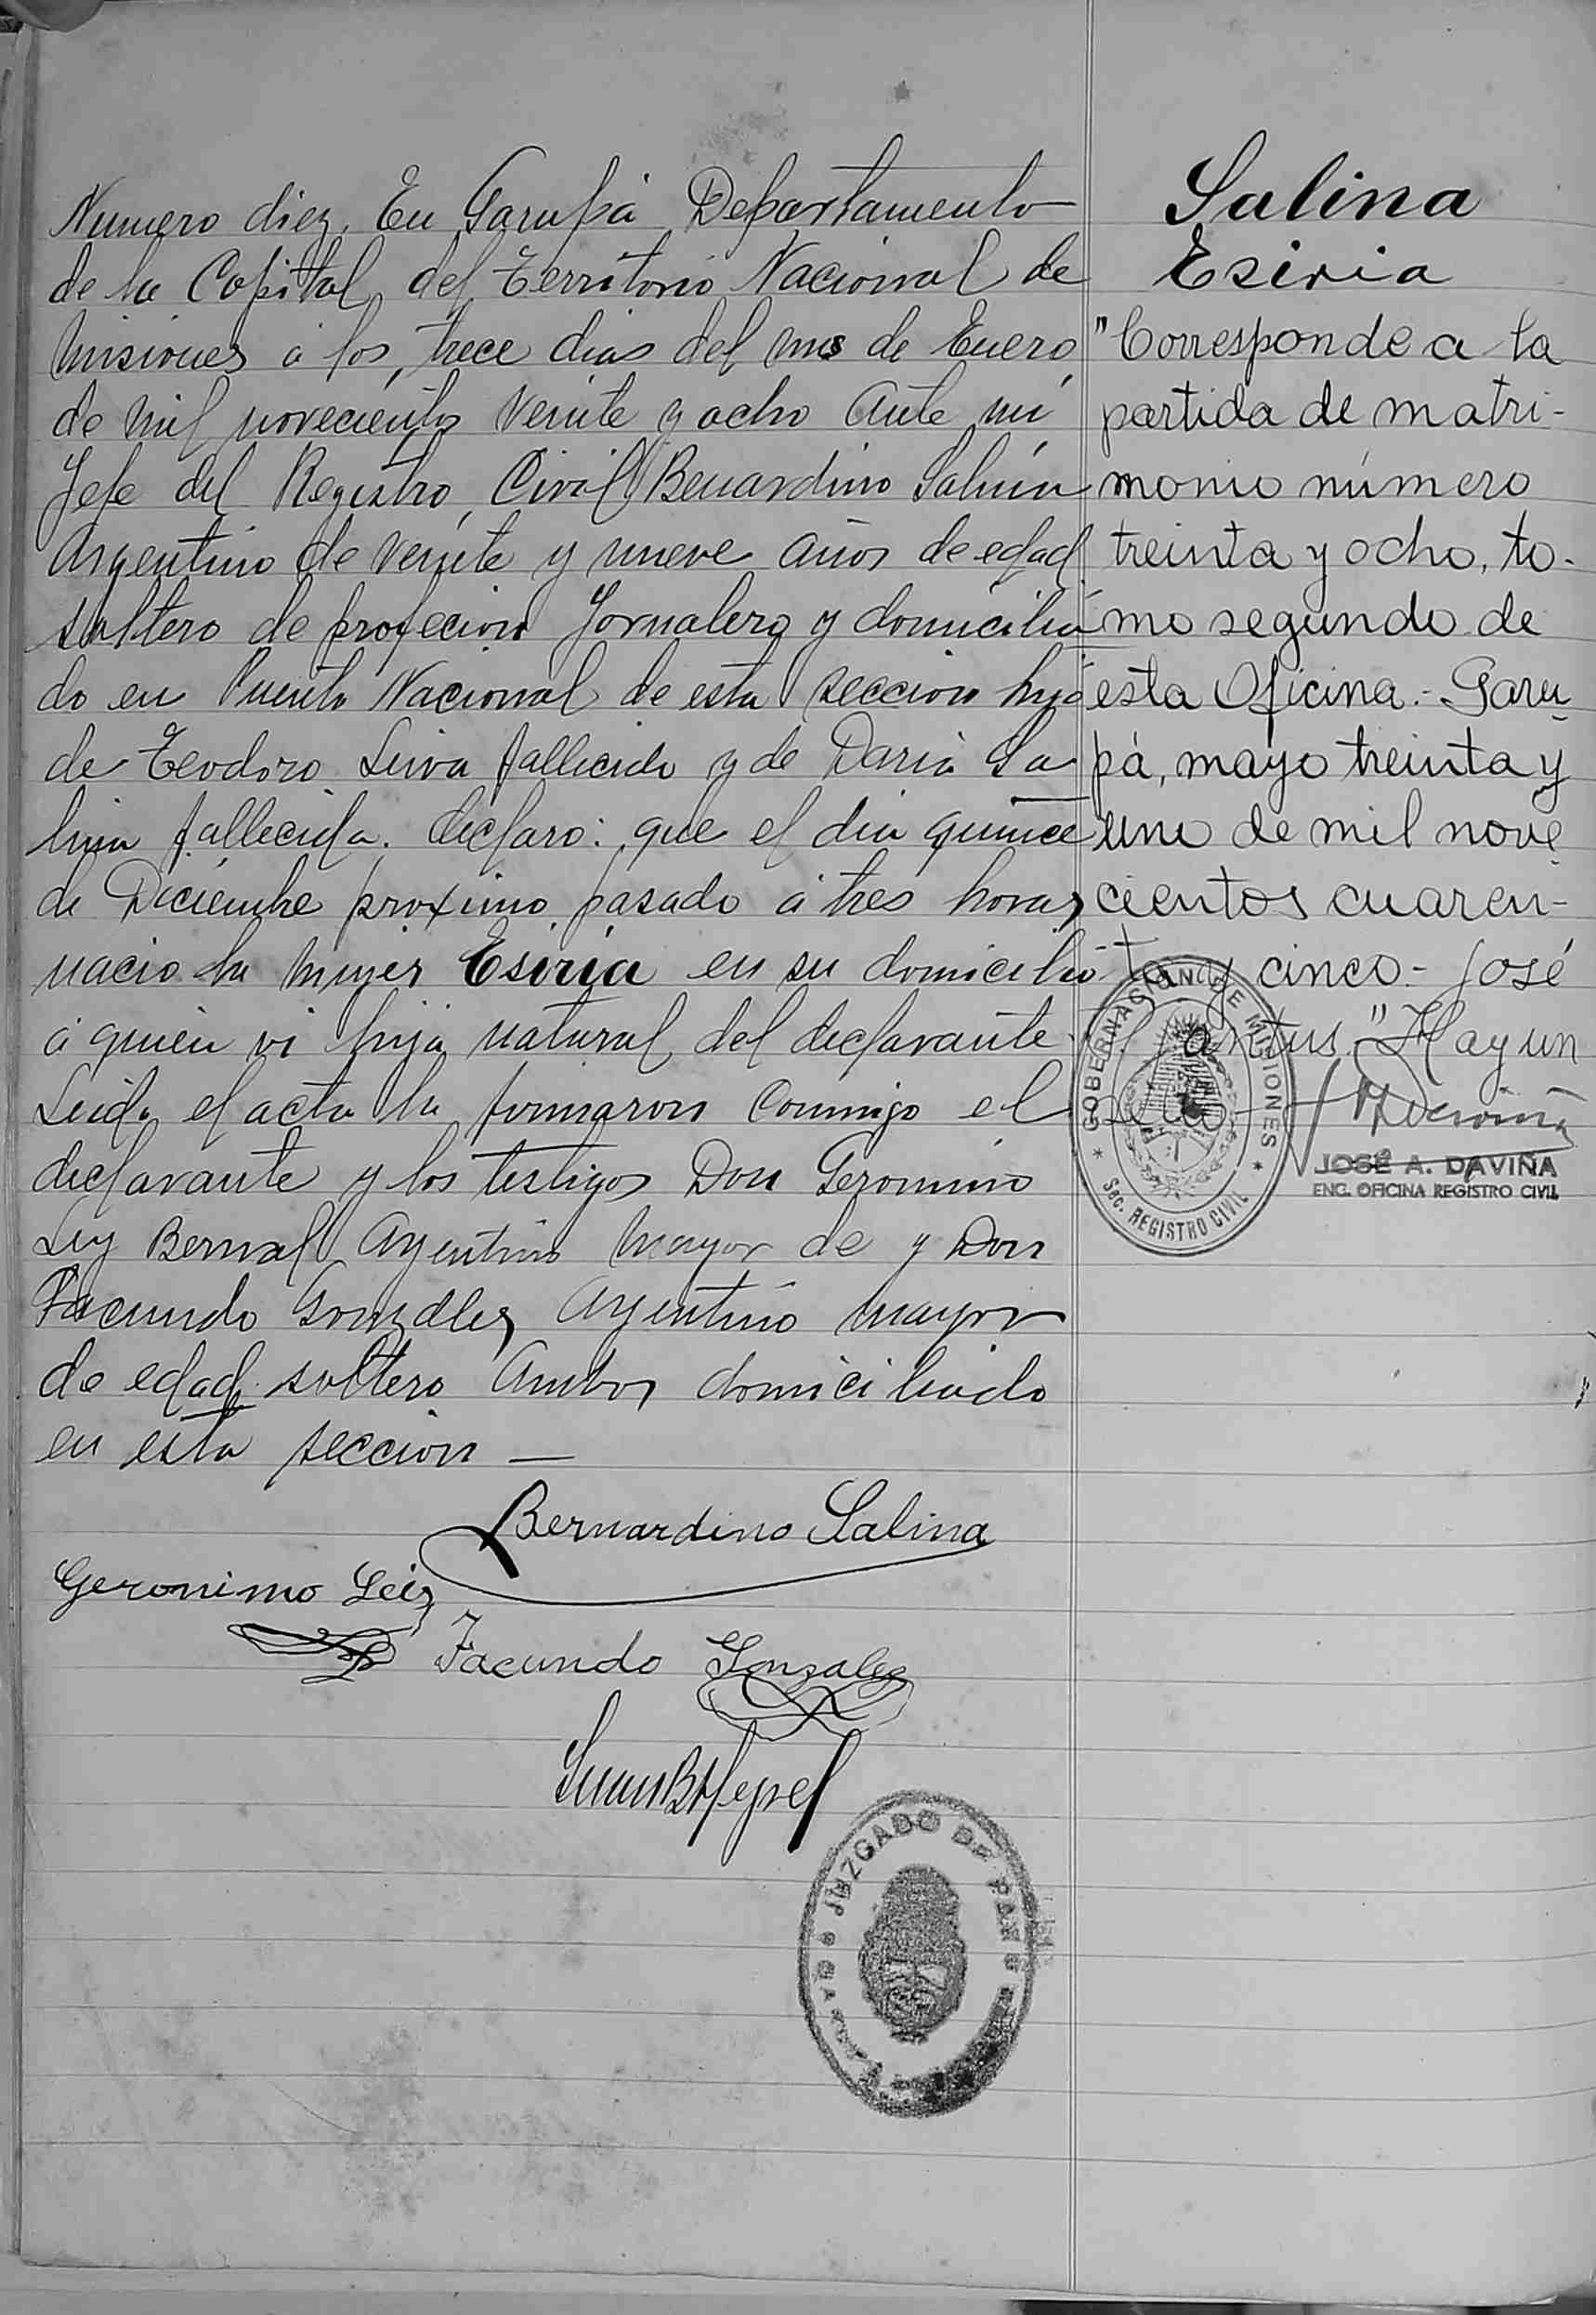 Numero diez. En Garupá Departamento
de la Capital del Territorio Nacional de
Misiones á los trece dias del mes de Enero
de mil novecientos veinte y ocho Ante mi
Jefe del Registro Civil Benardino Salina
Argentino de veinte y nueve años de edad
soltero de profecion Jornalero y domicilia
do en Puento Nacional de esta seccion hijo
de Teodoro Leiva fallecido y de Daria Sa
lina fallecida. declaro: que el dia quince
de Diciembre proximo pasado á tres horas
nacio la mujer Esiria en su domicilio
á quien vi hija natural del declarante
Leida el acta la firmaron conmigo el
declarante y los testigos Don Geronimo
Ley Bernal Argentino mayor de y Don
Facundo Gonzalez Argentino mayor
de edad soltero Ambos domiciliado
en esta seccion —
Bernardino Salina
Geronimo Leiz
Facundo Gonzalez
Salina
Esiria
"Corresponde a la
partida de matri-
monio número
treinta y ocho, to-
mo segundo de
esta Oficina.- Garu
pá, mayo treinta y
uno de mil nove
cientos cuaren-
ta y cinco.- José
Hay un
sello
GOBERNACION DE MISIONES
SEC. REGISTRO CIVIL
JOSÉ A. DAVIÑA
ENC. OFICINA REGISTRO CIVIL
JUZGADO DE PAZ